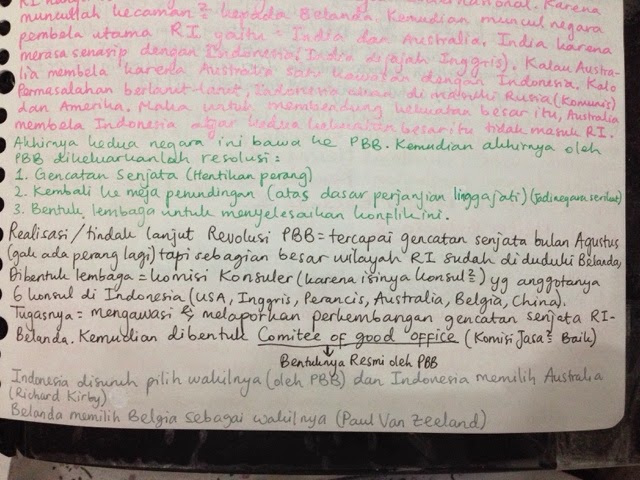 muncullah kecaman² kepada Belanda. Kemudian muncul negara
pembela utama RI, yaitu = India dan Australia. India karena
merasa senasip dengan Indonesia (India dijajah Inggris). Kalau Austra-
lia membela karena Australia satu kawasan dengan Indonesia. Kalo
Permasalahan berlarut-larut, Indonesia akan di masuki Rusia (Komunis)
dan Amerika. Maka untuk membendung kekuatan besar itu, Australia
membela Indonesia agar kedua kekuatan besar itu tidak masuk RI.
Akhirnya kedua negara ini bawa ke PBB. Kemudian akhirnya oleh
PBB dikeluarkanlah resolusi :
1. Gencatan Senjata (Hentikan perang)
2. Kembali ke meja perundingan (atas dasar perjanjian linggajati) (jadi negara serikat)
3. Bentuk lembaga untuk menyelesaikan konflik ini.
Realisasi/tindak lanjut Revolusi PBB = tercapai gencatan senjata bulan Agustus
(gak ada perang lagi) tapi sebagian besar wilayah RI sudah di duduki Belanda,
Dibentuk lembaga = Komisi Konsuler (karena isinya konsul²) yg anggotanya
6 konsul di Indonesia (USA, Inggris, Perancis, Australia, Belgia, China).
Tugasnya = mengawasi & melaporkan perkembangan gencatan senjata RI-
Belanda. Kemudian dibentuk Comitee of good office (Komisi Jasa² Baik)
Bentuknya Resmi oleh PBB
Indonesia disuruh pilih wakilnya (oleh PBB) dan Indonesia memilih Australia
(Richard Kirby)
Belanda memilih Belgia sebagai wakilnya (Paul Van Zeeland)